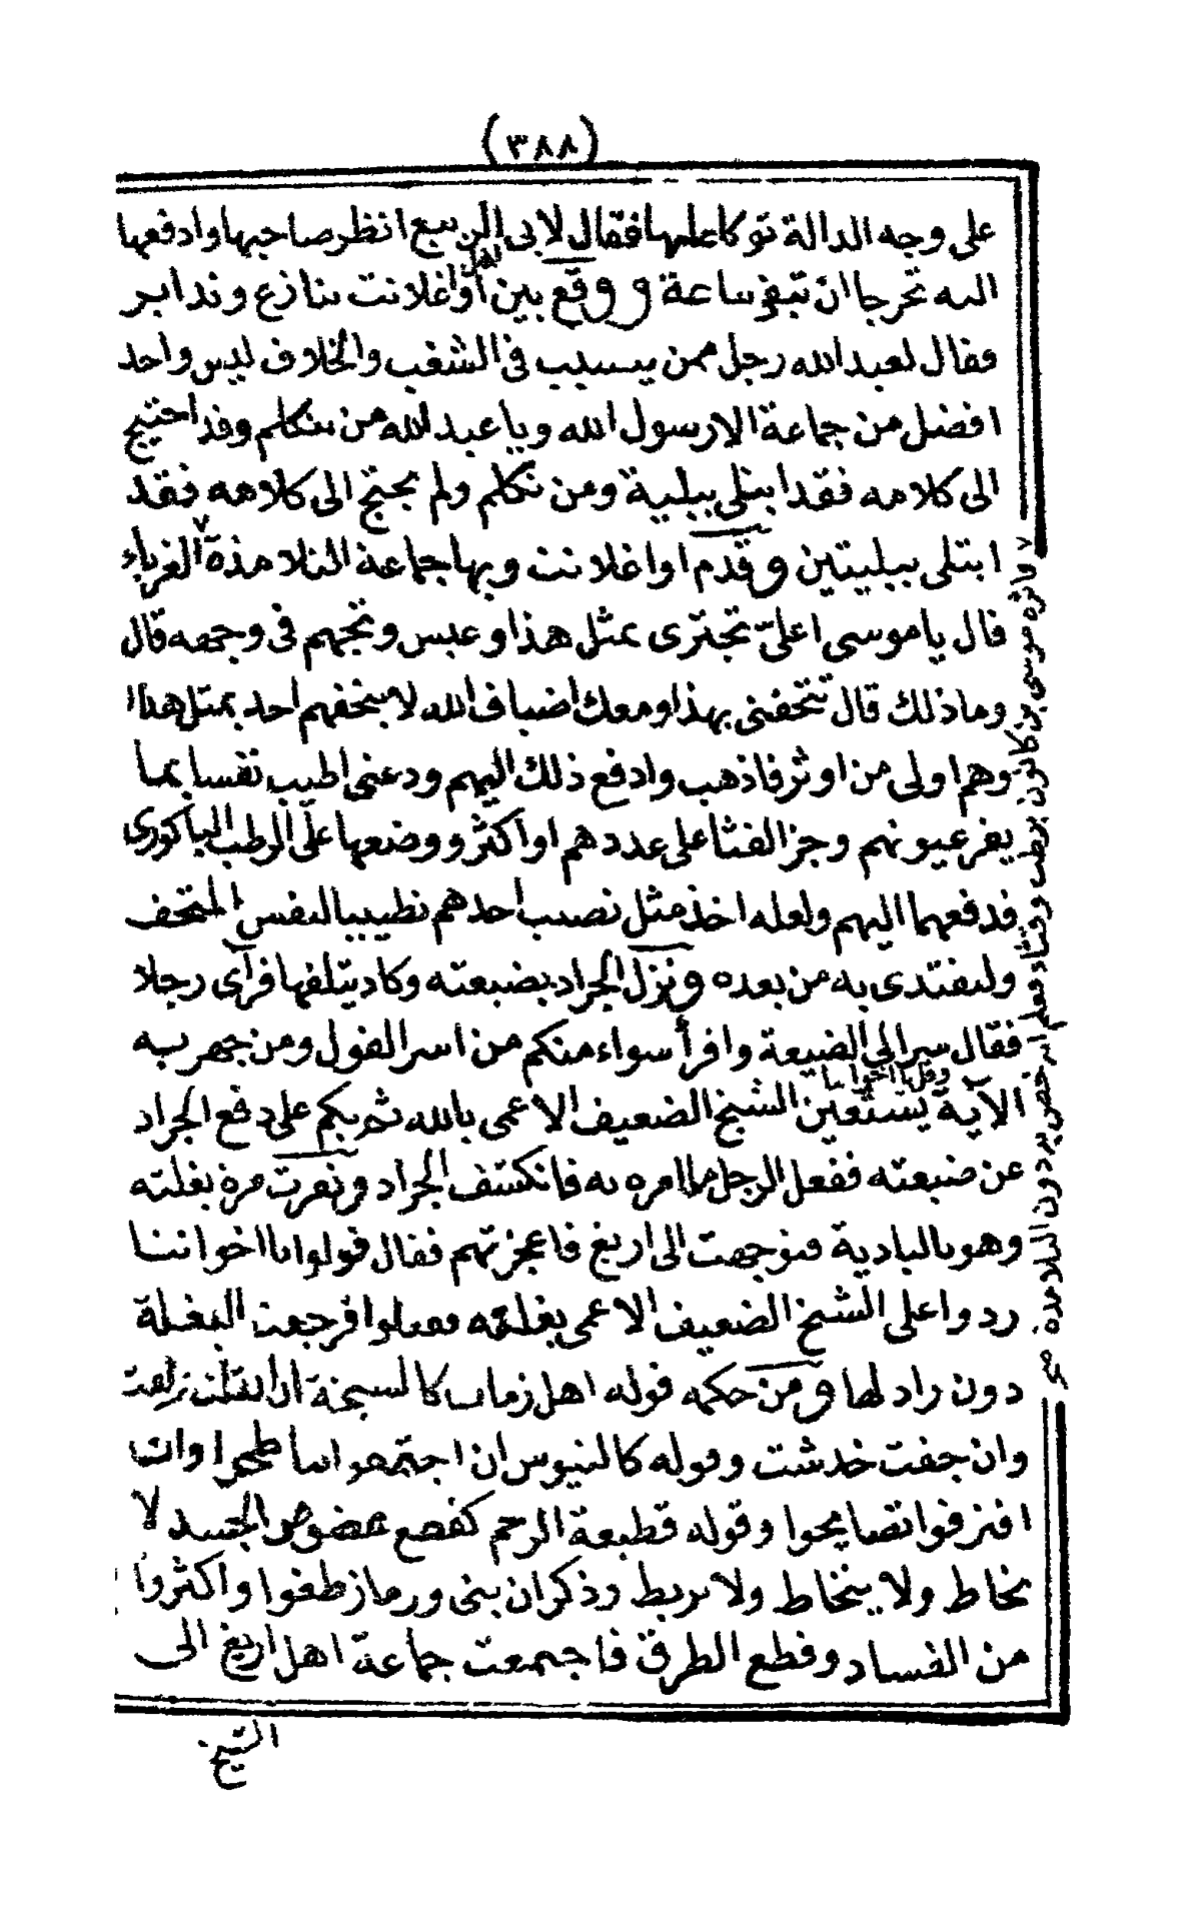 (٣٨٨)
على وجه الدالة توكا عليها فقال لابى الربيع انظر صاحبها وادفعها
اليه تحرجا ان تبقى ساعة و وقع بين اهل اوا غلانت تنازع وتدابر
فقال لعبد الله رجل ممن يسبب فى الشغب والخلاف ليس واحد
افضل من جماعة الا رسول الله ويا عبد الله من تكلم وقد احتيج
الى كلامه فقد ابتلى ببلية ومن تكلم ولم يحتج الى كلامه فقد
ابتلى ببليتين وقدم اوا غلانت وبها جماعة التلامذة الغرباء
قال يا موسى اعليّ تجترى بمثل هذا وعبس وتجهم فى وجهه قال
وما ذلك قال تتحفنى بهذا ومعك اضياف الله لا يتحفهم احد بمثل هذا
وهم اولى من اوثر فاذهب وادفع ذلك اليهم ودعنى اطيب نفسا بما
يقر عيونهم وجز القثا على عددهم او اكثر ووضعها على الرطب الباكورى
فدفعهما اليهم ولعله اخذ مثل نصيب احدهم تطييبا لنفس المتحف
وليقتدى به من بعده ونزل الجراد بضيعته وكاد يتلفها فرآى رجلا
فقال سر الى الضيعة واقرأ سواء منكم من اسر القول ومن جهر به
الآية وقل يا اخواننا يستعين الشيخ الضعيف الاعمى بالله ثم بكم على دفع الجراد
عن ضيعته ففعل الرجل ما امره به فانكشف الجراد ونفرت مرة بغلته
وهو بالبادية فتوجهت الى اريغ فاعجزتهم فقال قولوا يا اخواننا
ردوا على الشيخ الضعيف الاعمى بغلته ففعلوا فرجعت البغلة
دون راد لها ومن حكمه قوله اهل زماننا كالسبخة ان ابتلت زلقت
وان جفت خدشت وقوله كالتيوس ان اجتمعوا تناطحوا وان
افترقوا تصايحوا وقوله قطيعة الرحم كقصع عضو من الجسد لا
يخاط ولا يتخاط ولا يربط وذكر ان بنى ورماز طغوا واكثروا
من الفساد وقطع الطرق فاجتمعت جماعة اهل اريغ الى
الشيخ
فاثره موسى بن كانون برطب وقثاء فعلم انه خص به دون التلامذة صح